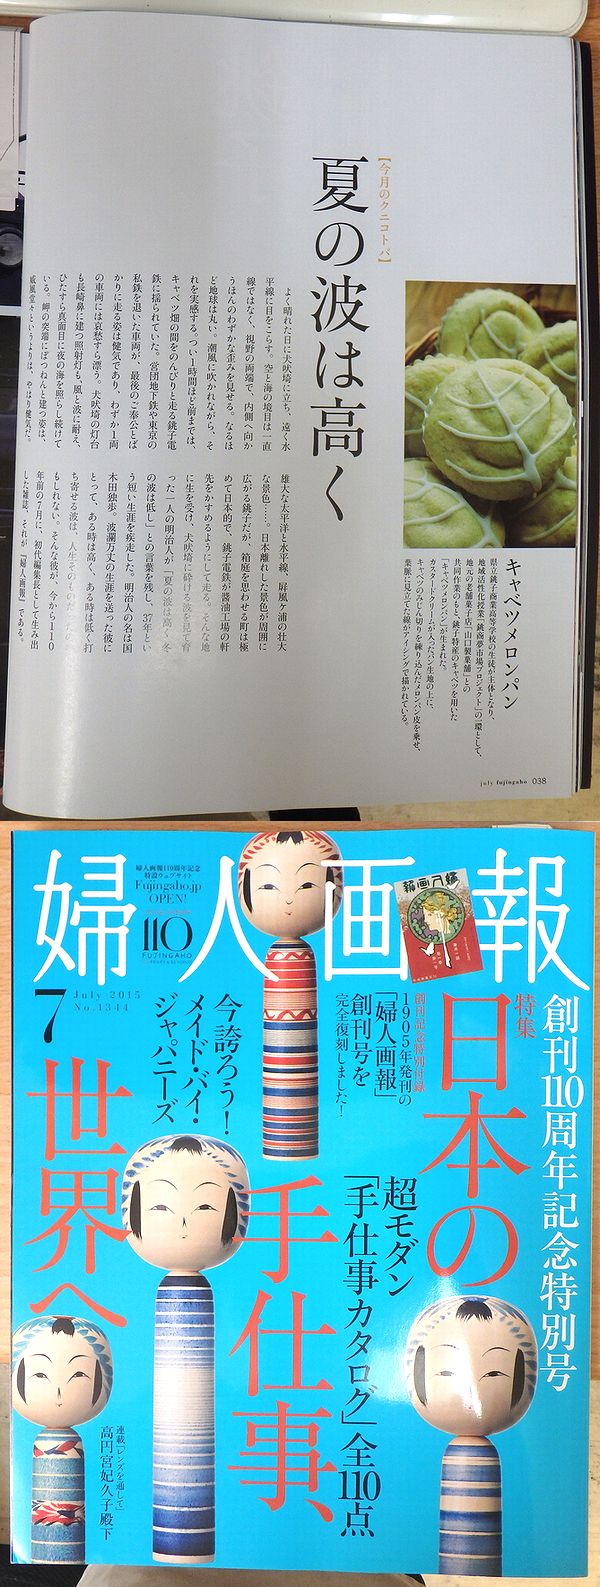 【今月のクニコトバ】
夏の波は高く
よく晴れた日に犬吠埼に立ち、遠く水
平線に目をこらす。空と海の境目は一直
線ではなく、視野の両端で、内側へ向か
うほんのわずかな歪みを見せる。なるほ
ど地球は丸い。潮風に吹かれながら、そ
れを実感する。つい1時間ほど前までは、
キャベツ畑の間をのんびりと走る銚子電
鉄に揺られていた。営団地下鉄や東京の
私鉄を退いた車両が、最後のご奉公とば
かりに走る姿は健気であり、わずか1両
の車両には哀愁すら漂う。犬吠埼の灯台
も長崎鼻に建つ照射灯も、風と波に耐え、
ひたすら真面目に夜の海を照らし続けて
いる。岬の突端にぽつねんと建つ姿は、
威風堂々というよりは、やはり健気だ。
雄大な太平洋と水平線、屏風ヶ浦の壮大
な景色……。日本離れした景色が周囲に
広がる銚子だが、箱庭を思わせる町は極
めて日本的で、銚子電鉄が醬油工場の軒
先をかすめるようにして走る。そんな地
に生を受け、犬吠埼に砕ける波を見て育
った一人の明治人が「夏の波は高く冬
の波は低し」との言葉を残し、37年とい
う短い生涯を疾走した。明治人の名は国
木田独歩。波瀾万丈の生涯を送った彼に
とって、ある時は高く、ある時は低く打
ち寄せる波は、人生そのものだ
もしれない。そんな彼が、今から110
年前の7月に、初代編集長として生み出
した雑誌、それが『婦人画報』である。
キャベツメロンパン
県立銚子商業高等学校の生徒が主体となり、
地域活性化授業「銚商夢市場プロジェクト」の一環として、
地元の老舗菓子店「山口製菓舗」との
共同作業のもと、銚子特産のキャベツを用いた
「キャベツメロンパン」が生まれた。
カスタードクリームが入ったパン生地の上に、
キャベツのみじん切りを練り込んだメロンパン皮を乗せ、
葉脈に見立てた線がアイシングで描かれている。
july fujingaho 038
婦人画報
婦人画報110周年記念
特設ウェブサイト
Fujingaho.jp
OPEN!
110
FUJINGAHO
報画人婦
7
July 2015
No.1344
創刊110周年記念特別号
特集
日本の
手仕事、
世界へ
創刊記念特別付録
1905年発刊の
「婦人画報」
創刊号を
完全復刻しました!
今誇ろう!
メイド・バイ・
ジャパニーズ
超モダン
「手仕事カタログ」全110点
連載「レンズを通して」
高円宮妃久子殿下